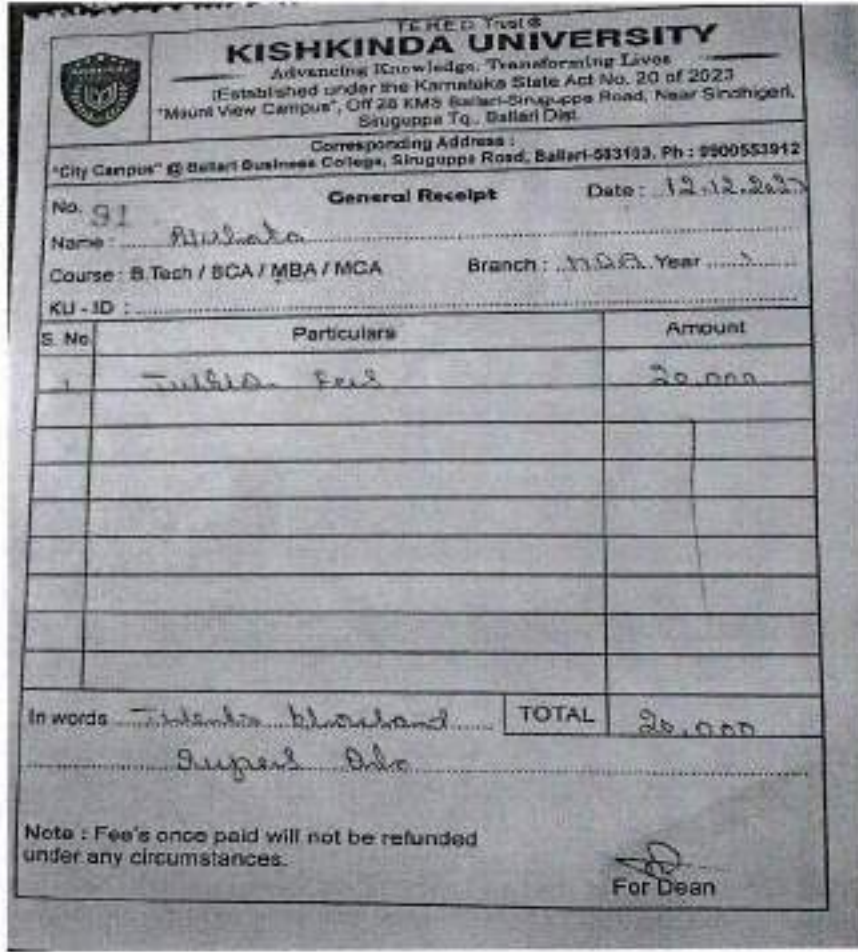 TEHRD Trust®
KISHKINDA UNIVERSITY
Advancing Knowledge, Transforming Lives
(Established under the Karnataka State Act No. 20 of 2023
"Mount View Campus", Off 28 KMS Ballari-Siruguppa Road, Near Sindhigeri,
Siruguppa Tq., Ballari Dist.
Corresponding Address :
"City Campus" @ Ballari Business College, Siruguppa Road, Ballari-583103, Ph : 9900553912
No. 91 General Receipt Date : 12.12.2023
Name :
Course : B.Tech / BCA / MBA / MCA Branch : MBA Year 1
KU - ID :
S. No. Particulars Amount
1 Fees 20,000
In words Twenty thousand TOTAL 20,000
Rupees Only
Note : Fee's once paid will not be refunded
under any circumstances.
For Dean